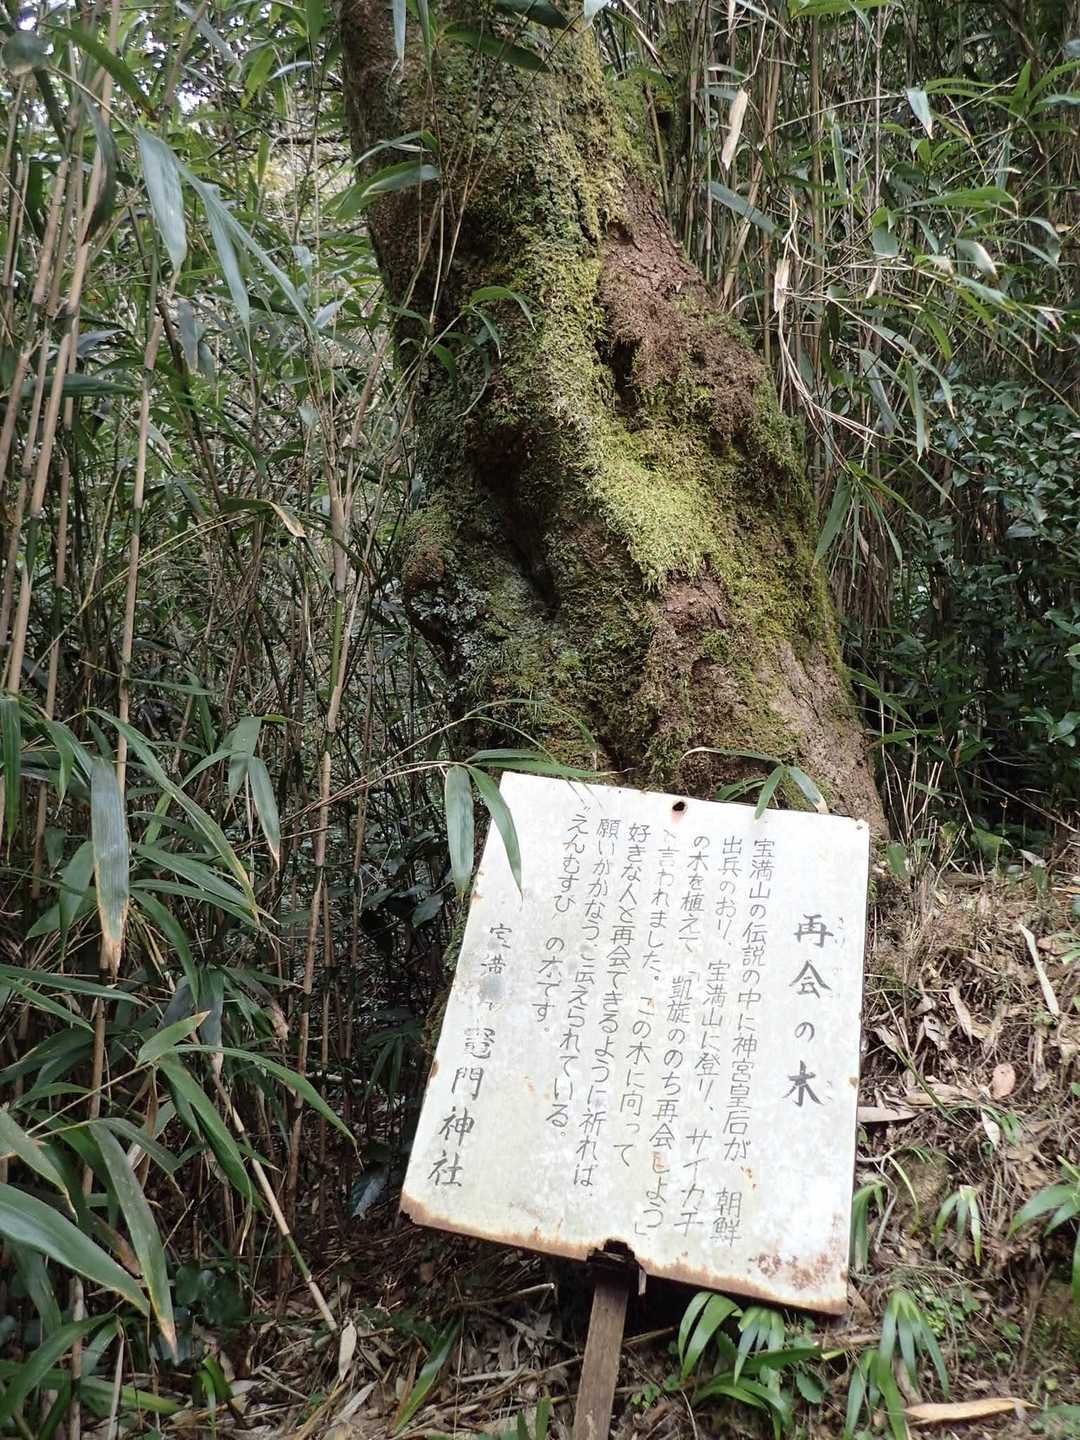 再会の木
宝満山の伝説の中に神宮皇后が、朝鮮
出兵のおり、宝満山に登り、サイカチ
の木を植えて「凱旋ののち再会しよう」
と言われました。この木に向って
好きな人と再会できるように祈れば、
願いがかなうと伝えられている。
えんむすび の木です。
宝満 竈門神社